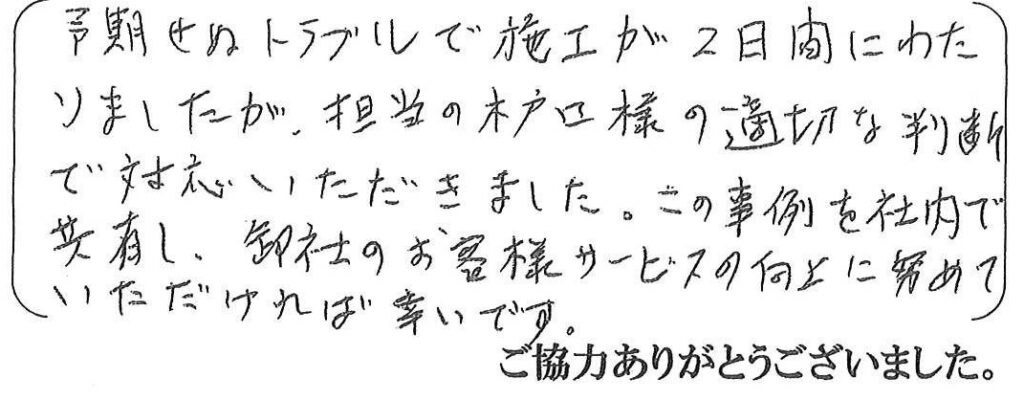 予期せぬトラブルで施工が2日間にわた
りましたが、担当の木戸口様の適切な判断
で対応いただきました。この事例を社内で
共有し、御社のお客様サービスの向上に努めて
いただければ幸いです。
ご協力ありがとうございました。